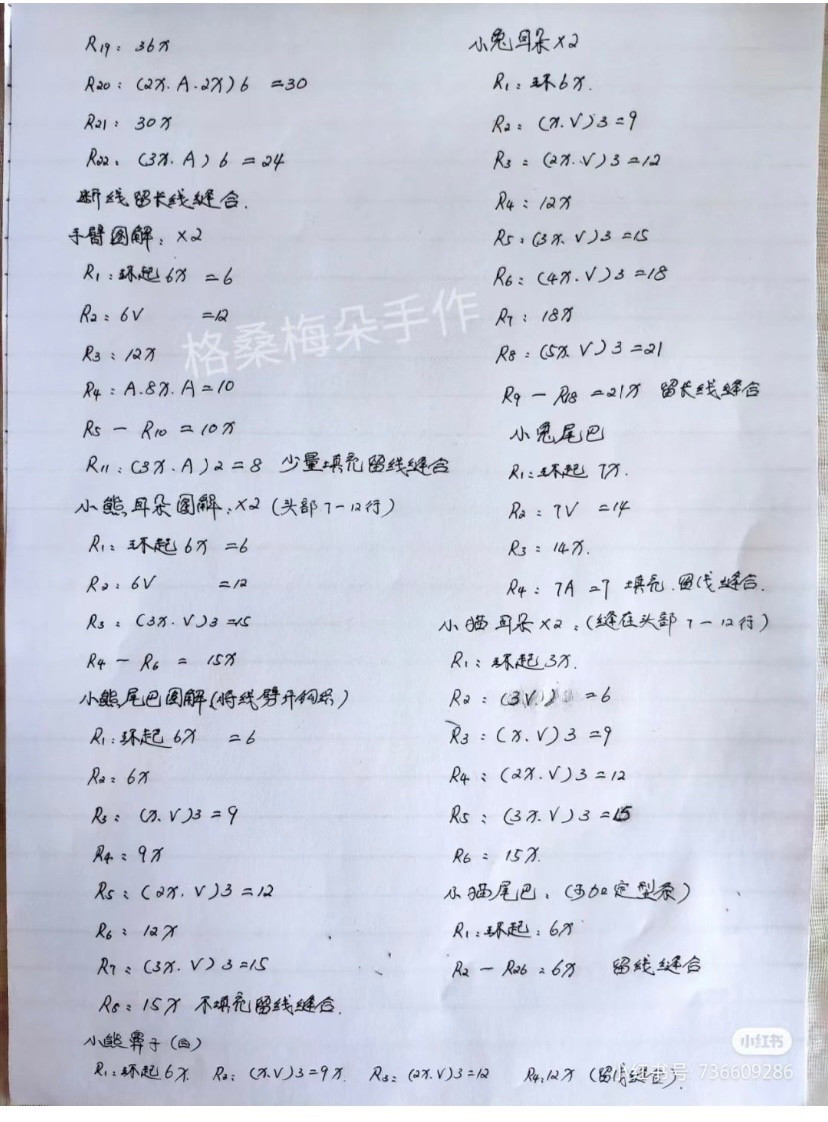 R19: 36X
R20: (2X. A. 2X) 6 =30
R21: 30X
R22: (3X. A) 6 = 24
断线留长线缝合.
手臂图解: X2
R1: 环起6X =6
R2: 6V =12
R3: 12X
R4: A.8X.A=10
R5 - R10 = 10X
R11: (3X.A) 2 = 8 少量填充留线缝合
小熊耳朵图解: X2 (头部7-12行)
R1: 环起6X =6
R2: 6V =12
R3: (3X.V)3=15
R4 - R6 = 15X
小熊尾巴图解(将线劈开钩织)
R1: 环起6X =6
R2: 6X
R3: (X.V)3=9
R4: 9X
R5: (2X.V)3=12
R6: 12X
R7: (3X.V)3=15
R8: 15X 不填充留线缝合.
小熊鼻子(白)
R1: 环起6X. R2: (X.V)3=9X. R3: (2X.V)3=12 R4: 12X (留线缝合).
小兔耳朵X2
R1: 环6X.
R2: (X.V)3=9
R3: (2X.V)3=12
R4: 12X
R5: (3X.V)3=15
R6: (4X.V)3=18
R7: 18X
R8: (5X.V)3=21
R9 - R18 =21X 留长线缝合
小兔尾巴
R1: 环起 7X.
R2: 7V =14
R3: 14X.
R4: 7A =7 填充.留线缝合.
小猫耳朵X2: (缝在头部7-12行)
R1: 环起3X.
R2: (3V.) =6
R3: (X.V)3=9
R4: (2X.V)3=12
R5: (3X.V)3=15
R6: 15X.
小猫尾巴. (可加定型条)
R1: 环起: 6X
R2 - R26: 6X 留线缝合
格桑梅朵手作
小红书
小红书号 736609286